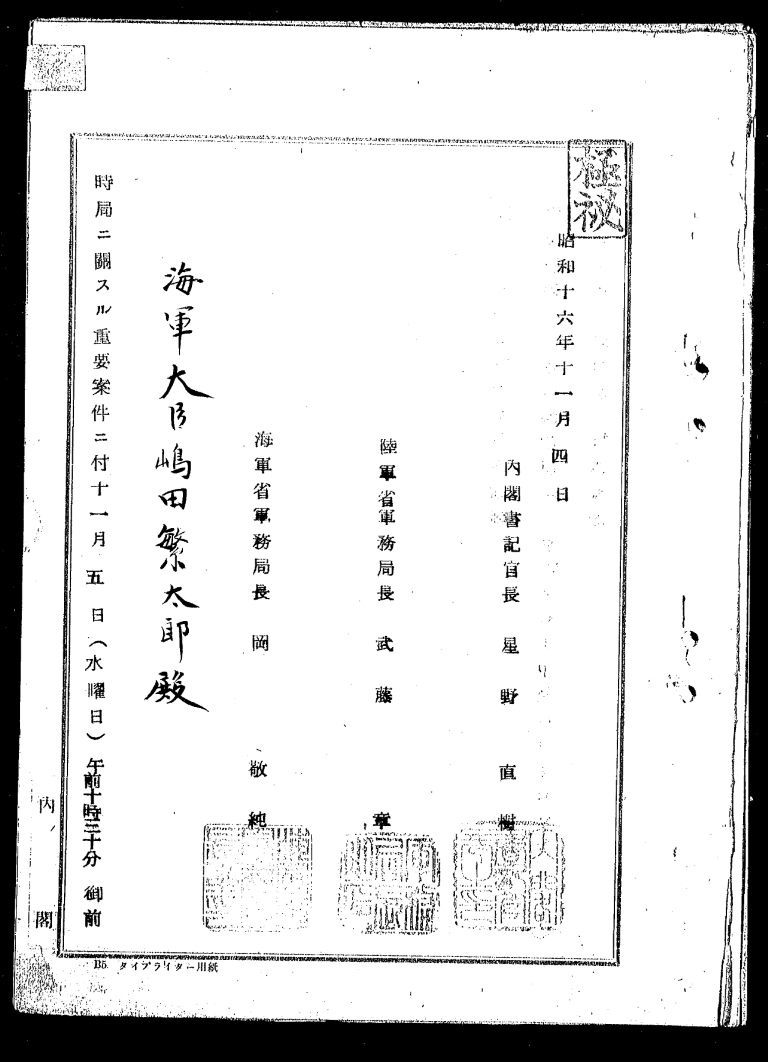 極祕
昭和十六年十一月四日
內閣書記官長 星野直樹
陸軍省軍務局長 武藤章
海軍省軍務局長 岡敬純
海軍大臣嶋田繁太郎殿
時局ニ關スル重要案件ニ付十一月五日(水曜日)午前十時三十分御前
內閣
B5. タイプライター用紙